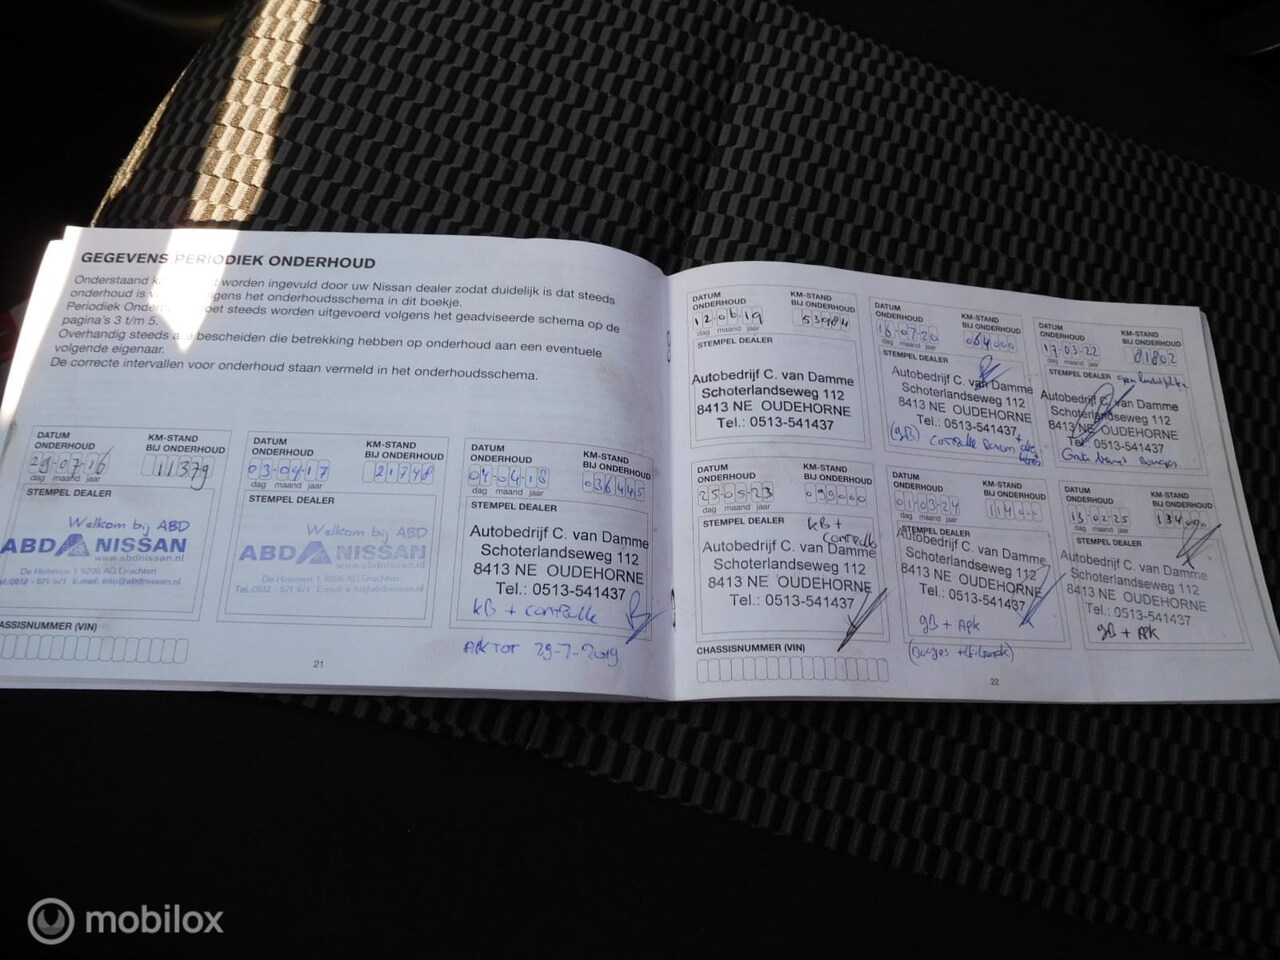 GEGEVENS PERIODIEK ONDERHOUD
Onderstaand worden ingevuld door uw Nissan dealer zodat duidelijk is dat steeds
onderhoud is volgens het onderhoudsschema in dit boekje.
Periodiek moet steeds worden uitgevoerd volgens het geadviseerde schema op de
pagina's 3 t/m 5.
Overhandig steeds bescheiden die betrekking hebben op onderhoud aan een eventuele
volgende eigenaar.
De correcte intervallen voor onderhoud staan vermeld in het onderhoudsschema.
DATUM
ONDERHOUD
KM-STAND
BIJ ONDERHOUD
29-07-16
11379
dag maand jaar
STEMPEL DEALER
Welkom bij ABD
ABD NISSAN
www.abdnissan.nl
De Hemmen 1, 9206 AG Drachten
Tel.: 0512 - 571 971 E.mail: info@abdnissan.nl
DATUM
ONDERHOUD
KM-STAND
BIJ ONDERHOUD
03-04-17
21748
dag maand jaar
STEMPEL DEALER
Welkom bij ABD
ABD NISSAN
www.abdnissan.nl
De Hemmen 1, 9206 AG Drachten
Tel.: 0512 - 571 971 E.mail: info@abdnissan.nl
DATUM
ONDERHOUD
KM-STAND
BIJ ONDERHOUD
04-04-18
036445
dag maand jaar
STEMPEL DEALER
Autobedrijf C. van Damme
Schoterlandseweg 112
8413 NE OUDEHORNE
Tel.: 0513-541437
kB + controlle
APK TOT 29-7-2019
CHASSISNUMMER (VIN)
21
DATUM
ONDERHOUD
KM-STAND
BIJ ONDERHOUD
12-06-19
53984
dag maand jaar
STEMPEL DEALER
Autobedrijf C. van Damme
Schoterlandseweg 112
8413 NE OUDEHORNE
Tel.: 0513-541437
DATUM
ONDERHOUD
KM-STAND
BIJ ONDERHOUD
16-07-20
064000
dag maand jaar
STEMPEL DEALER
Autobedrijf C. van Damme
Schoterlandseweg 112
8413 NE OUDEHORNE
Tel.: 0513-541437
(gB) controlle
DATUM
ONDERHOUD
KM-STAND
BIJ ONDERHOUD
17-03-22
81802
dag maand jaar
STEMPEL DEALER
Autobedrijf C. van Damme
Schoterlandseweg 112
8413 NE OUDEHORNE
Tel.: 0513-541437
Grote beurt Bougies
DATUM
ONDERHOUD
KM-STAND
BIJ ONDERHOUD
25-05-23
099000
dag maand jaar
STEMPEL DEALER
kB +
controlle
Autobedrijf C. van Damme
Schoterlandseweg 112
8413 NE OUDEHORNE
Tel.: 0513-541437
DATUM
ONDERHOUD
KM-STAND
BIJ ONDERHOUD
01-03-24
114000
dag maand jaar
STEMPEL DEALER
Autobedrijf C. van Damme
Schoterlandseweg 112
8413 NE OUDEHORNE
Tel.: 0513-541437
gB + Apk
DATUM
ONDERHOUD
KM-STAND
BIJ ONDERHOUD
13-02-25
dag maand jaar
STEMPEL DEALER
Autobedrijf C. van Damme
Schoterlandseweg 112
8413 NE OUDEHORNE
Tel.: 0513-541437
gB + APK
CHASSISNUMMER (VIN)
22
mobilox